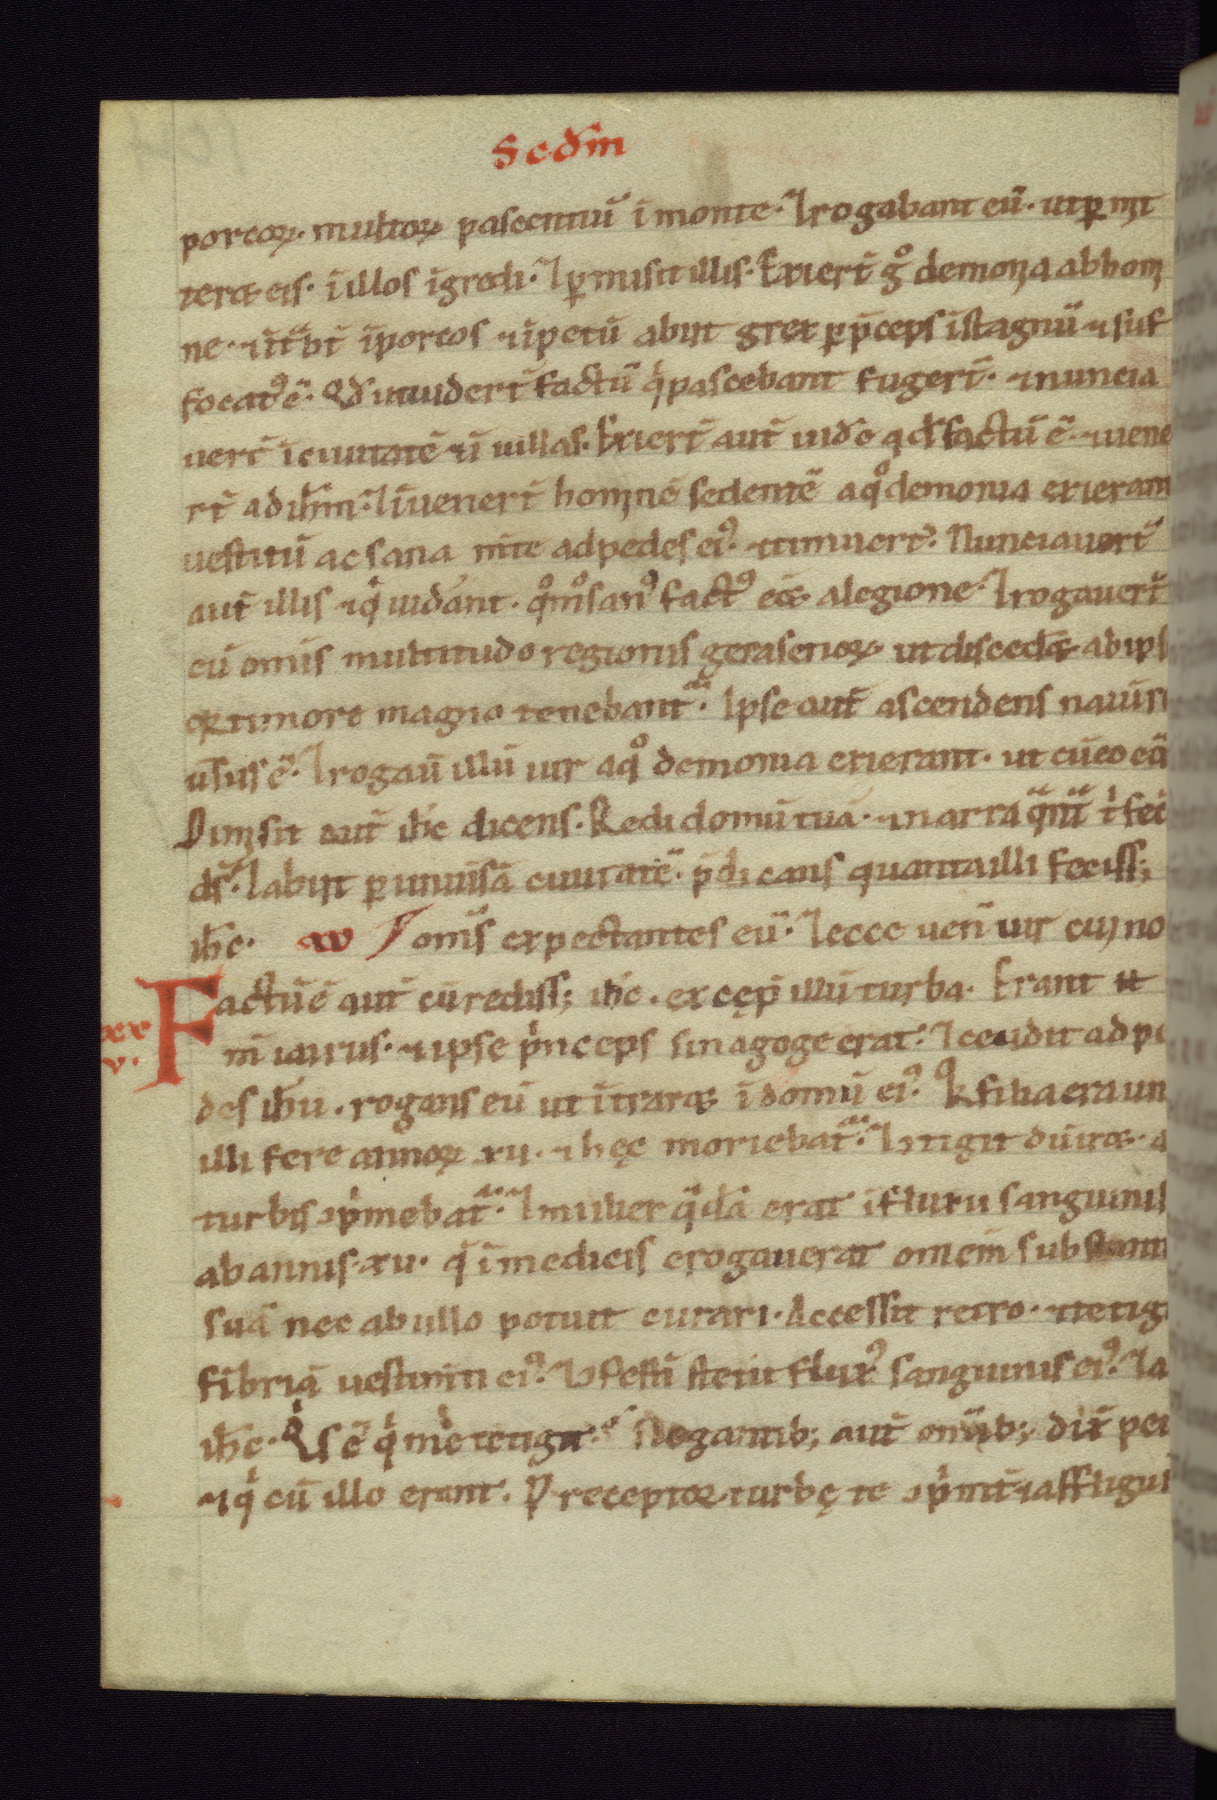 Scdm̄
porcoꝝ· multoꝝ pascentiū ī monte· ⁊rogabant eū· ut ꝑmit
teret eis· ī illos īgredi· ⁊ꝑmisit illis· Exiert̄ gͦ demonia ab homi
ne· ⁊īt̄ břt̄ ī porcos ⁊īpetū abiit grex ꝑ p̄ceps ī stagnū ⁊suf
focatꝰ ē· Qd̄ ut uidert̄ factū qͥ pascebant fugert̄· ⁊nuncia
uert̄ ī ciuitatē ⁊ī uillas· Exiert̄ aut̄ uid̄e qd̄ factū ē· ⁊uene
rt̄ ad ihm̄· ⁊īuenert̄ hominē sedentē a qͦ demonia exierant
uestitū ac sana m̄te ad pedes eiꝰ· ⁊timuert̄· Nunciauert̄
aut̄ illis ⁊qͥ uiderant· qͦmͦ sanꝰ factꝰ eēt· a legione· ⁊rogauert̄
eū om̄is multitudo regionis gerasenoꝝ· ut discederet· ab ips
qꝛ timore magno tenebant᷑· Ipse aut̄ ascendens nauīm
ūsus ē· ⁊rogaū illū uir a qͦ demonia exierant· ut cū eo eēt
Dimisit aut̄ ihc̄ dicens· Redi domū tuā· ⁊narra qͣnͣ t̄ fec̄
ds̄· ⁊abiit ꝑ uniūsā ciuitatē· p̄dicans quanta illi feciss;
ihc̄· om̄s expectantes eū· ⁊ecce uen̄ uir cui no
Factū ē aut̄ cū rediss; ihc̄· excep̄ illū turba· Erant
m̄ iairus· ⁊ipse pͥnceps sinagoge erat· ⁊cecidit ad pe
des ihū· rogans eū ut ītraret ī domū eiꝰ· filia era un
illi fere annoꝝ xii· ⁊hęc moriebat᷑· ⁊ctigit dū iret· a
turbis ↄpͥmebat᷑· ⁊mulier qͣdā erat ī fluxu sanguinis
ab annis· xii· q̄ ī medicis erogauerat omem̄ substanti
suā nec ab ullo potuit curari· Accessit retro· ⁊tetigi
fibriā uestim̄ti eiꝰ· ⁊ↄfestī stetit fluxꝰ sanguinis eiꝰ· ⁊a
ihc̄· Qͥs ē qͥ me tetigit· Negantib; aut̄ om̄ib; dix̄ pet
⁊qͥ cū illo erant· Preceptor turbę te ↄpͥmt̄ ⁊affligunt
xx
v·